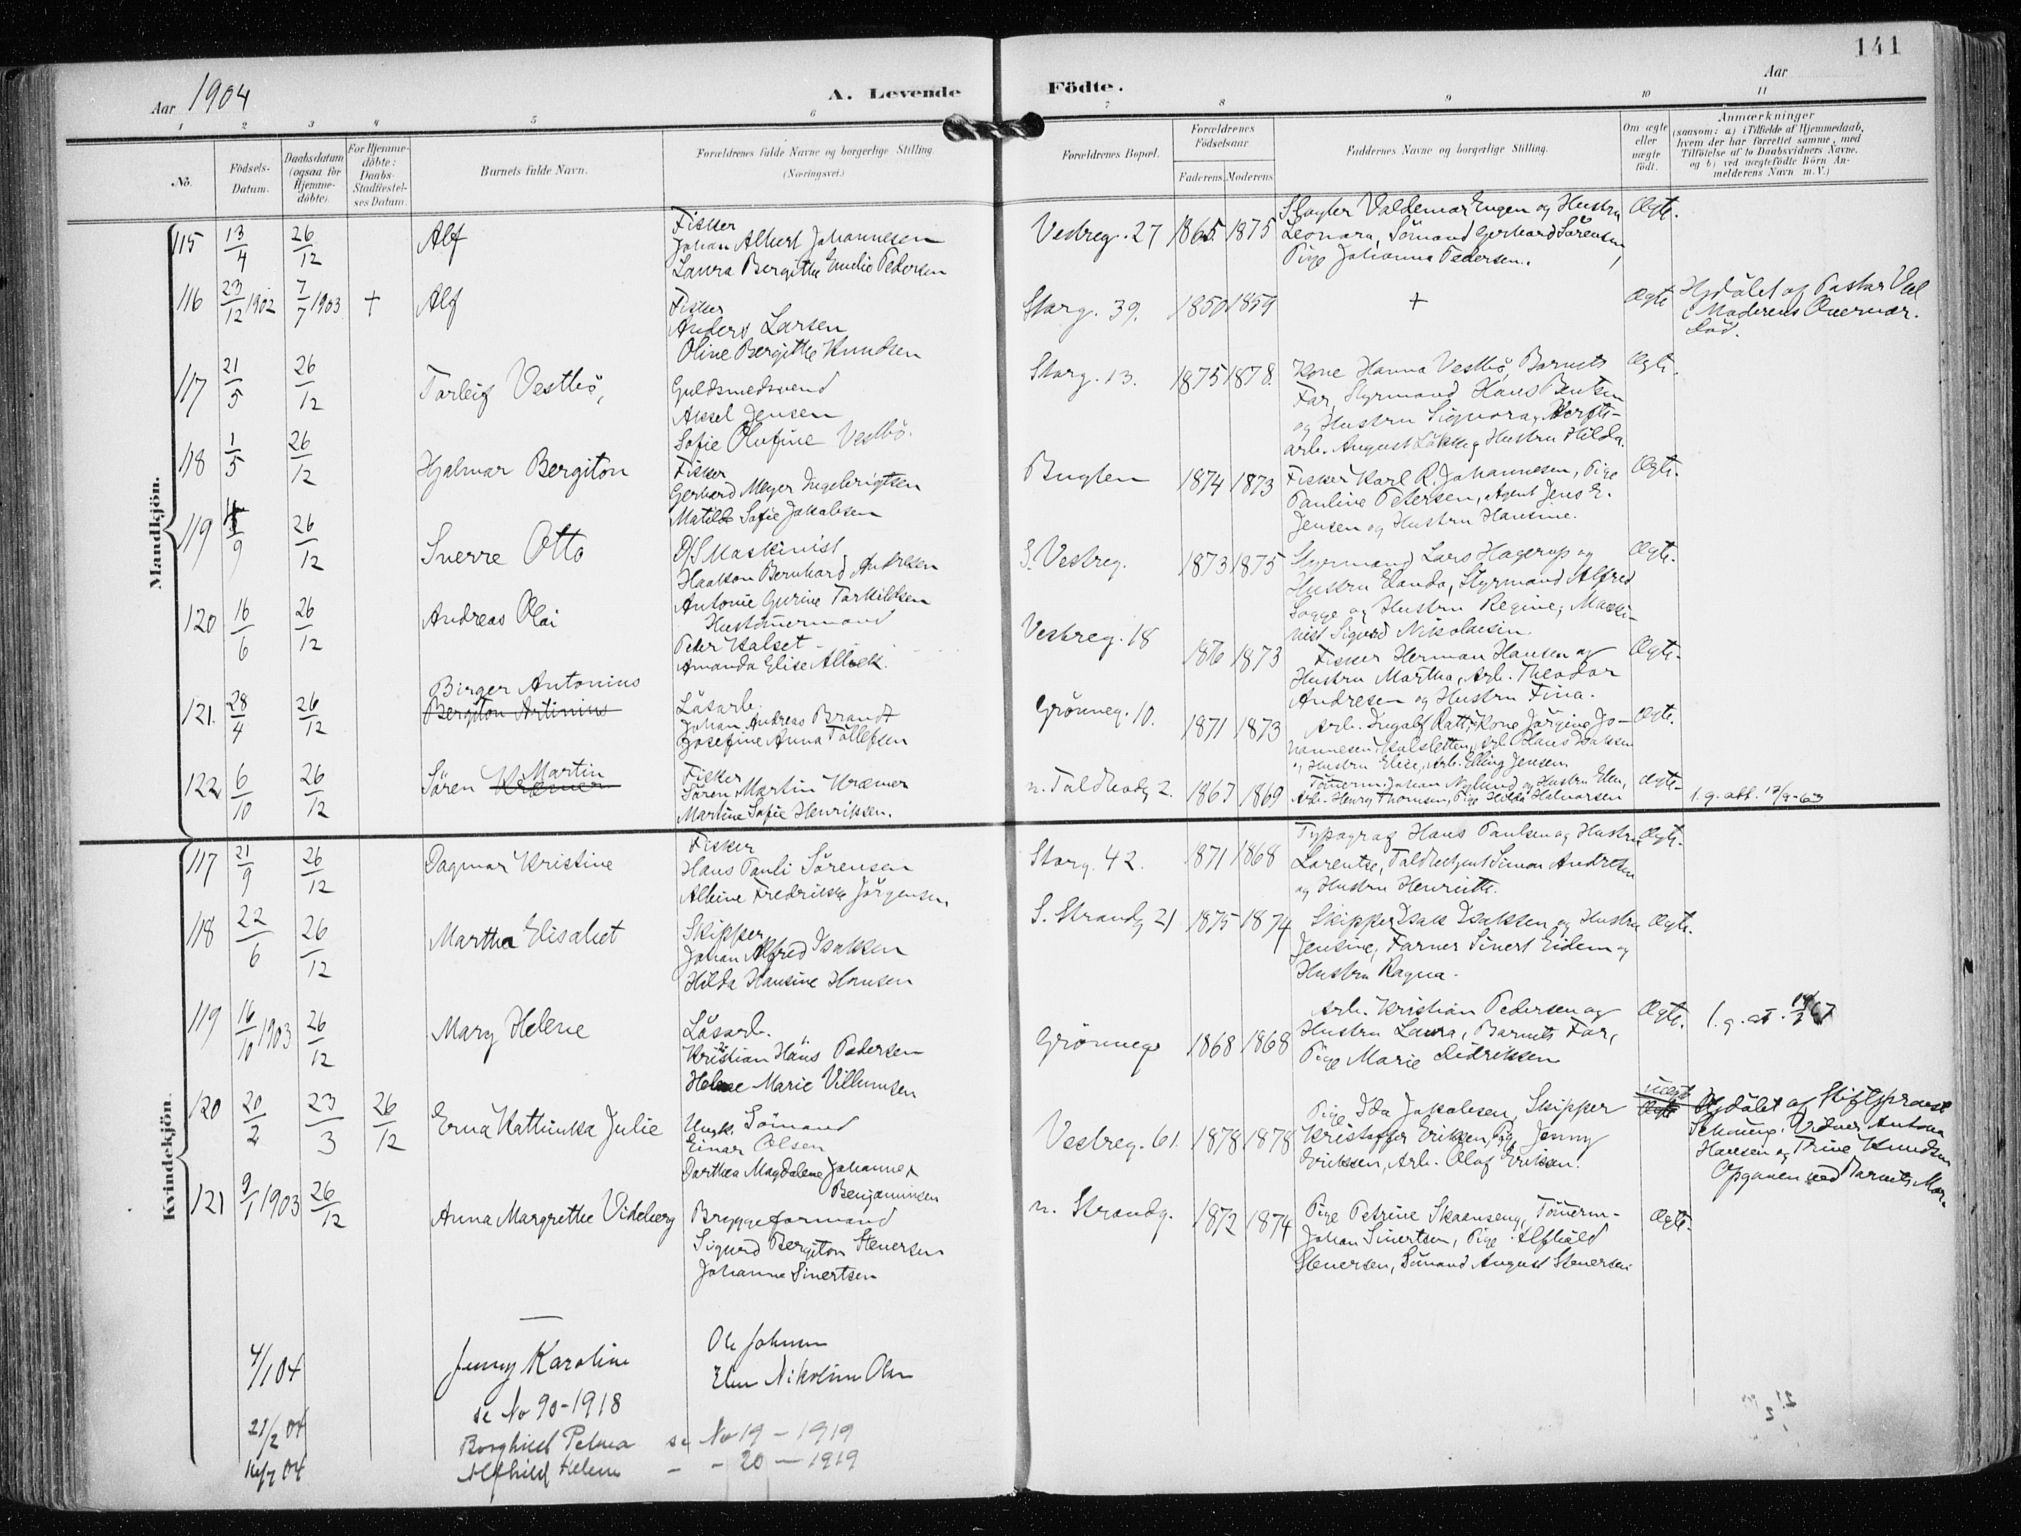 141
Aar 1904
A. Levende
Födte.
Aar
1 2 3 4 5 6 7 8 9 10 11
No.
Födsels-Datum.
Daabsdatum (ogsaa for Hjemme-döbte).
For Hjemme-döbte: Daabs-Stadfæstel-ses Datum.
Barnets fulde Navn.
Forældrenes fulde Navne og borgerlige Stilling.
(Næringsvei.)
Forældrenes Bopæl.
Forældrenes Födselsaar
Faderens. Moderens.
Faddernes Navne og borgerlige Stilling.
Om ægte eller uægte födt.
Anmærkninger
(saasom: a) i Tilfælde af Hjemmedaab,
hvem der har forrettet samme, med
Tilföielse af to Daabsvidners Navne,
og b) ved uægtefödte Börn An-
melderens Navn m.V.)
Mandkjön.
115 13/4 26/12 Alf
Fisker
Johan Albert Johannesen
Laura Bergithe Emilie Pedersen
Vestreg. 27 1865. 1875
Slagter Valdemar Engen og Hustru
Leonara, Sömand Gerhard Sörensen,
Pige Johanna Pedersen.
Ægte.
116 23/12 1902 7/7 1903 + Alf
Fisker
Anders Larsen
Oline Bergitte Knudsen
Storg. 39. 1850 1859
+
Ægte
Hjdöbt af Pastor
i Moderens Nærvær.
Död.
117 21/5 26/12 Torleif Vestbö,
Guldsmedsvend
Aksel Jensen
Sofie Olufine Vestbö.
Storg. 13. 1875 1878.
Kone Hanna Vestbö, Barnets
Far, Styrmand Hans Bentsen
og Hustru Signora,
arb. August Lökke og Hustru Hilda.
Ægte.
118 1/5 26/12 Hjalmar Bergiton
Fisker
Gerhard Meyer Ingebrigtsen
Matilde Sofie Jakobsen
Bugten 1874 1873
Fisker Karl R. Johannesen, Pige
Pauline Petersen, Agent Jens E.
Jensen og Hustru Hansine.
Ægte.
119 /9 26/12 Sverre Otto
D/S Maskinist
Haakon Bernhard Andresen
Antonie Gurine Torkildsen
S. Vestreg. 1873 1875
Styrmand Lars Hagerup og
Hustru Elanda, Styrmand Alfred
Logge og Hustru Regine, Maski-
nist Sigurd Nikolaisen
Ægte.
120 16/6 26/12 Andreas Olai
Hustömmermand
Peder Kalset
Amanda Elise Albek.
Vestreg. 18 1876 1873
Fisker Herman Hansen og
Hustru Martha, Arb. Theodor
Andresen og Hustru Fina.
Ægte.
121. 28/4 26/12 Birger Antonius
Bergiton Artinius
Läsarb.
Johan Andreas Brandt
Josefine Anna Tollefsen
Grönneg. 10. 1871 1873
Arb. Ingolf Ratt, Kone Jörgine Jo-
hannesen, Kalsletten, Arb. Hans Isaksen
og Hustru Elise, Arb. Elling Jensen
Ægte.
122 6/10 26/12 Sören Martin
Kræmer
Fisker
Sören Martin Kræmer
Martine Sofie Henriksen.
n. Toldbodg 2. 1867 1869
Tömerm. Johan Nylund og Hustru Elen,
Arb. Henry Thomsen, Pige Hilda Halvorsen
Ægte.
l. g. att. 17/9-63
Kvindekjön.
117 21/9 26/12 Dagmar Kristine
Fisker
Hans Pauli Sörensen
Albine Fredrikke Jörgensen
Storg. 42. 1871 1868
Typograf Hans Paulsen og Hustru
Larentse, Toldbetjent Simon Andresen
og Hustru Henriette.
Ægte.
118 22/6 26/12 Martha Elisabet
Skipper
Johan Alfred Isaksen
Hilda Hansine Hansen
S. Strandg 21 1875 1874
Skipper Isak Isaksen og Hustru
Jensine, Farver Sivert Eidem og
Hustru Ragna.
Ægte.
119 16/10 1903 26/12 Mary Helene
Läsarb.
Kristian Hans Pedersen
Helene Marie Villumsen
Grönneg. 1868 1868
Arb. Kristian Pedersen og
Hustru Laura, Barnets Far,
Pige Marie Didriksen
Ægte.
l. g. at. 19/2 67
120 20/2 23/3 26/12 Erna Kattinka Julie
Ungk. Sömand
Einar Olsen
Dorthea Magdalene Johanne
Benjaminsen
Vestreg. 61. 1878 1878
Pige Ida Jakobsen, Skipper
Kristoffer Eriksen, Pige Jenny
Eriksen, Arb. Olaf Eriksen.
uægt
Ægte
Hjdöbt af Stiftsprovst
Vidner Antona
Hansen og Trine Knudsen
Opgaven ved Barnets Mor.
121 9/1 1903 26/12 Anna Margrethe Videberg
Bryggeformand
Sigurd Bergiton Stenersen
Johanna Sivertsen
n. Strandg. 1872 1874
Pige Petrine Skaanseng, Tömerm.
Johan Sivertsen, Pige Alfhild
Stenersen, Sömand August Stenersen
Ægte.
4/1 04 Jenny Karoline
Ole Johnsen
Elen Nikoline Olsen
se No 90-1918
21/2 04 Borghild Petrea se No 19-1919
16/7 04 Alfhild Helene - - 20-1919